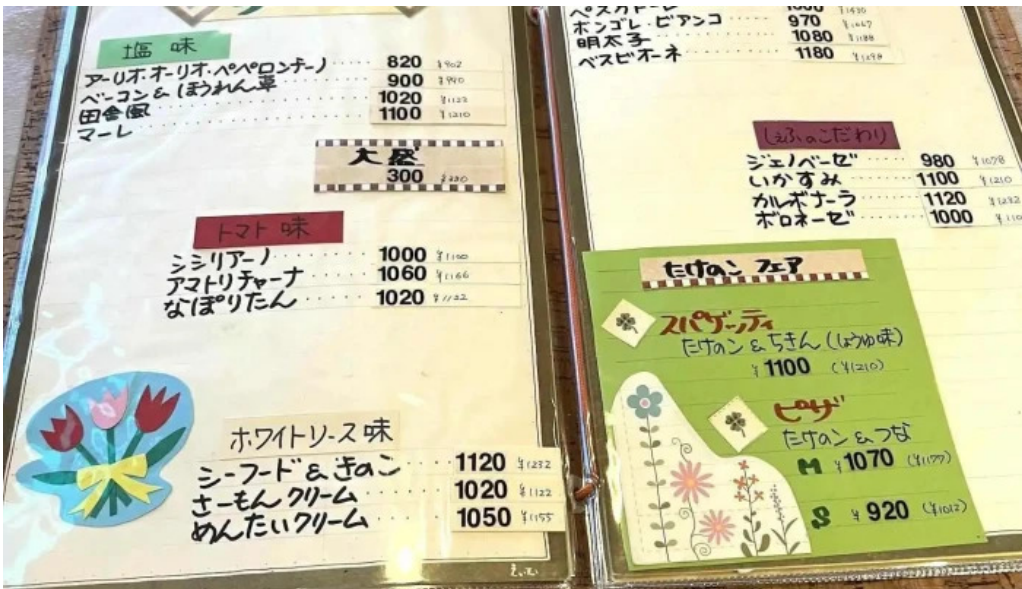 塩味
アーリオ・オーリオ・ペペロンチーノ 820 ¥902
ベーコン&ほうれん草 900 ¥990
田舎風 1020 ¥1122
マーレ 1100 ¥1210
大盛
300 ¥330
トマト味
シシリアーノ 1000 ¥1100
アマトリチャーナ 1060 ¥1166
なぽりたん 1020 ¥1122
ホワイトソース味
シーフード&きのこ 1120 ¥1232
さーもんクリーム 1020 ¥1122
めんたいクリーム 1050 ¥1155
ボンゴレ・ビアンコ 970 ¥1067
明太子 1080 ¥1188
ベスビオーネ 1180 ¥1298
しぇふのこだわり
ジェノベーゼ 980 ¥1078
いかすみ 1100 ¥1210
カルボナーラ 1120 ¥1232
ボロネーゼ 1000
たけのこ フェア
スパゲッティ
たけのこ&ちきん(しょうゆ味)
¥1100 (¥1210)
ピザ
たけのこ&つな
M ¥1070 (¥1177)
S ¥920 (¥1012)